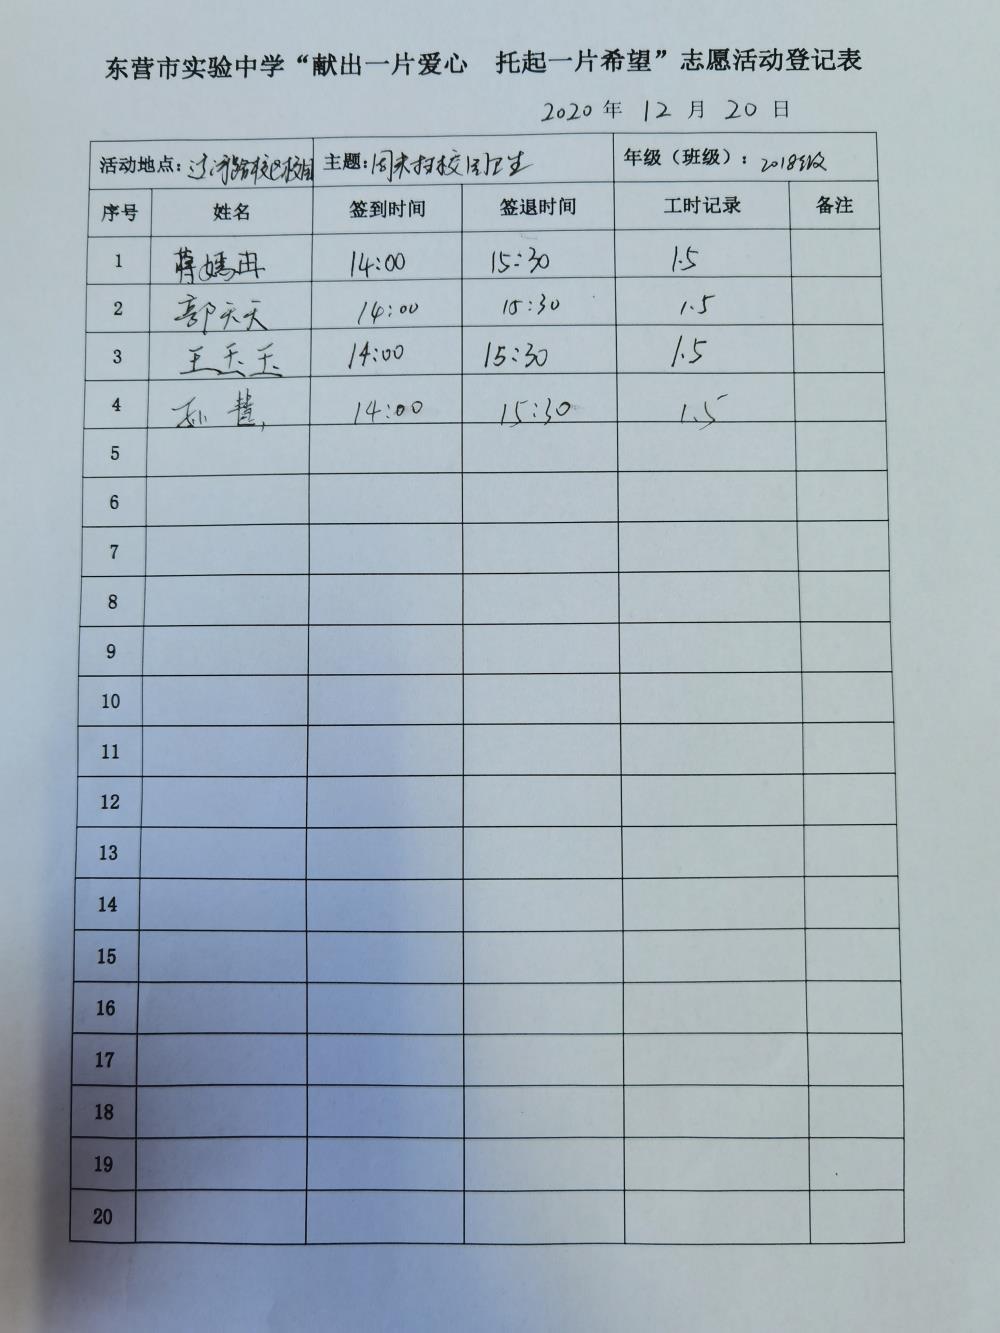 东营市实验中学“献出一片爱心 托起一片希望”志愿活动登记表
2020年 12月 20日
活动地点：辽河路校区校园 主题：周末扫校园卫生 年级（班级）：2018级
序号 姓名 签到时间 签退时间 工时记录 备注
1 蒋嫣冉 14:00 15:30 1.5
2 郭天天 14:00 15:30 1.5
3 王 14:00 15:30 1.5
4 孙慧 14:00 15:30 1.5
5
6
7
8
9
10
11
12
13
14
15
16
17
18
19
20